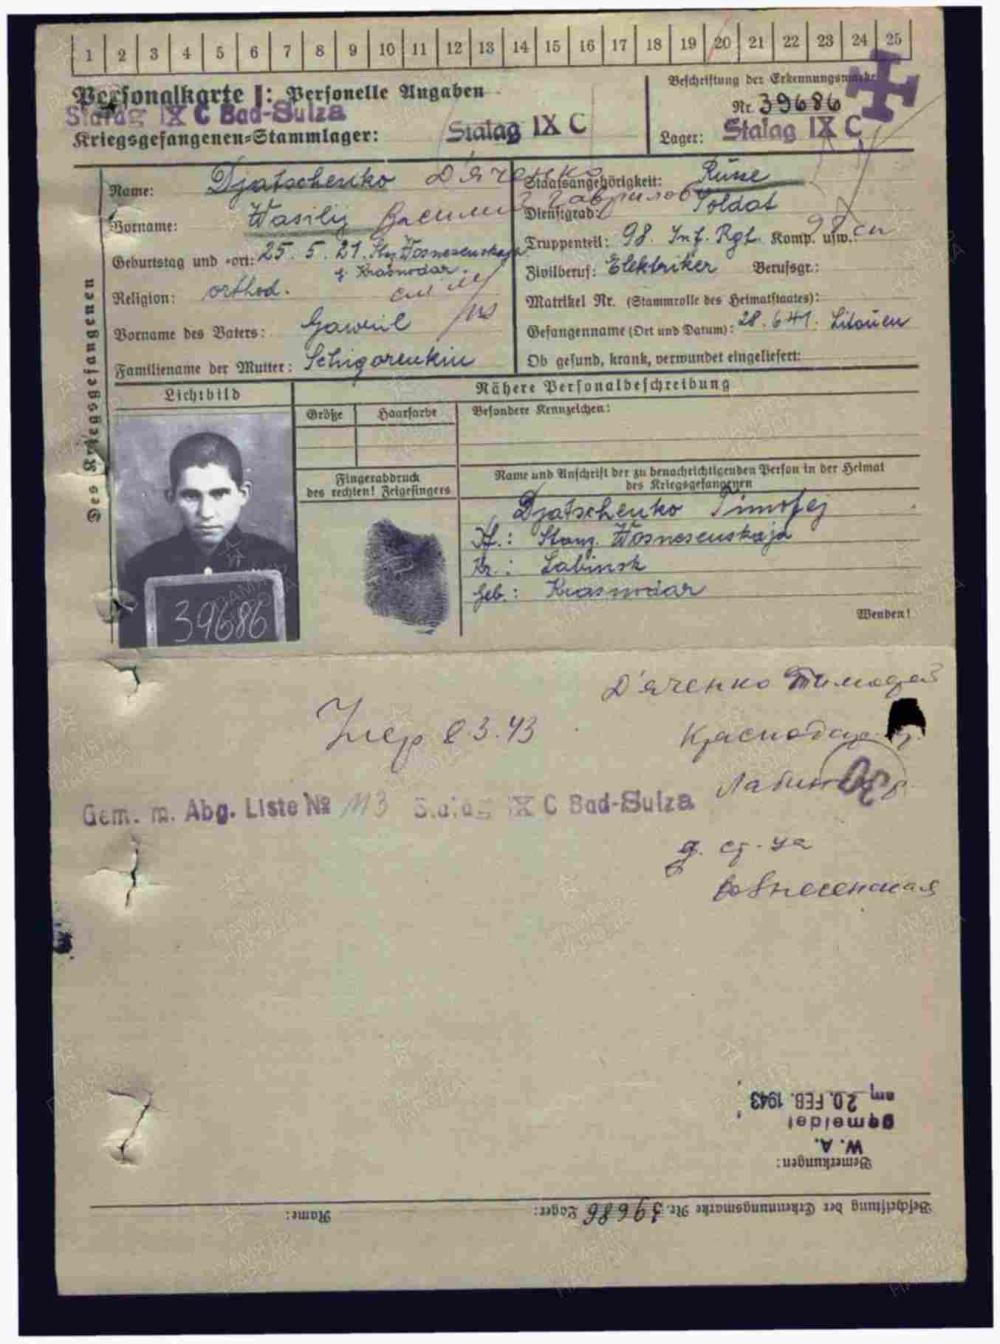 1 2 3 4 5 6 7 8 9 10 11 12 13 14 15 16 17 18 19 20 21 22 23 24 25
Personalkarte I: Personelle Angaben
Beschriftung der Erkennungsmarke
Stalag IX C Bad-Sulza
Nr. 39686
Kriegsgefangenen-Stammlager: Stalag IX C
Lager: Stalag IX C
Des Kriegsgefangenen
Name: Djatschenko Дяченко
Staatsangehörigkeit: Russe
Vorname: Wasilij Василий Гаврилов
Dienstgrad: Soldat
Truppenteil: 98. Inf. Rgt. Komp. usw.: 98 сп
Geburtstag und -ort: 25. 5. 21. Wosnesenskaja
Krasnodar.
Zivilberuf: Elektriker Berufsgr.:
Religion: orthod.
Matrikel Nr. (Stammrolle des Heimatstaates):
Vorname des Vaters: Gawriil
Gefangennahme (Ort und Datum): 28. 6 41. Litauen
Familienname der Mutter: Schigorenkin
Ob gesund, krank, verwundet eingeliefert:
Lichtbild
Nähere Personalbeschreibung
Größe Haarfarbe
Besondere Kennzeichen:
Fingerabdruck
des rechten! Zeigefingers
Name und Anschrift der zu benachrichtigenden Person in der Heimat
des Kriegsgefangenen
Djatschenko Timofej
Stanz. Wosnesenskaja
Kr.: Labinsk
Geb.: Krasnodar
39686
Wenden!
Дяченко Тимофей
Умер 8 3.43
Краснодар
Gem. m. Abg. Liste № 113 Stalag IX C Bad-Sulza
д. ст-ца
Вознесенская
Bemerkungen:
W. A.
gemeldet
am 20. FEB. 1943
Beschriftung der Erkennungsmarke Nr. 39686 Lager: Name: